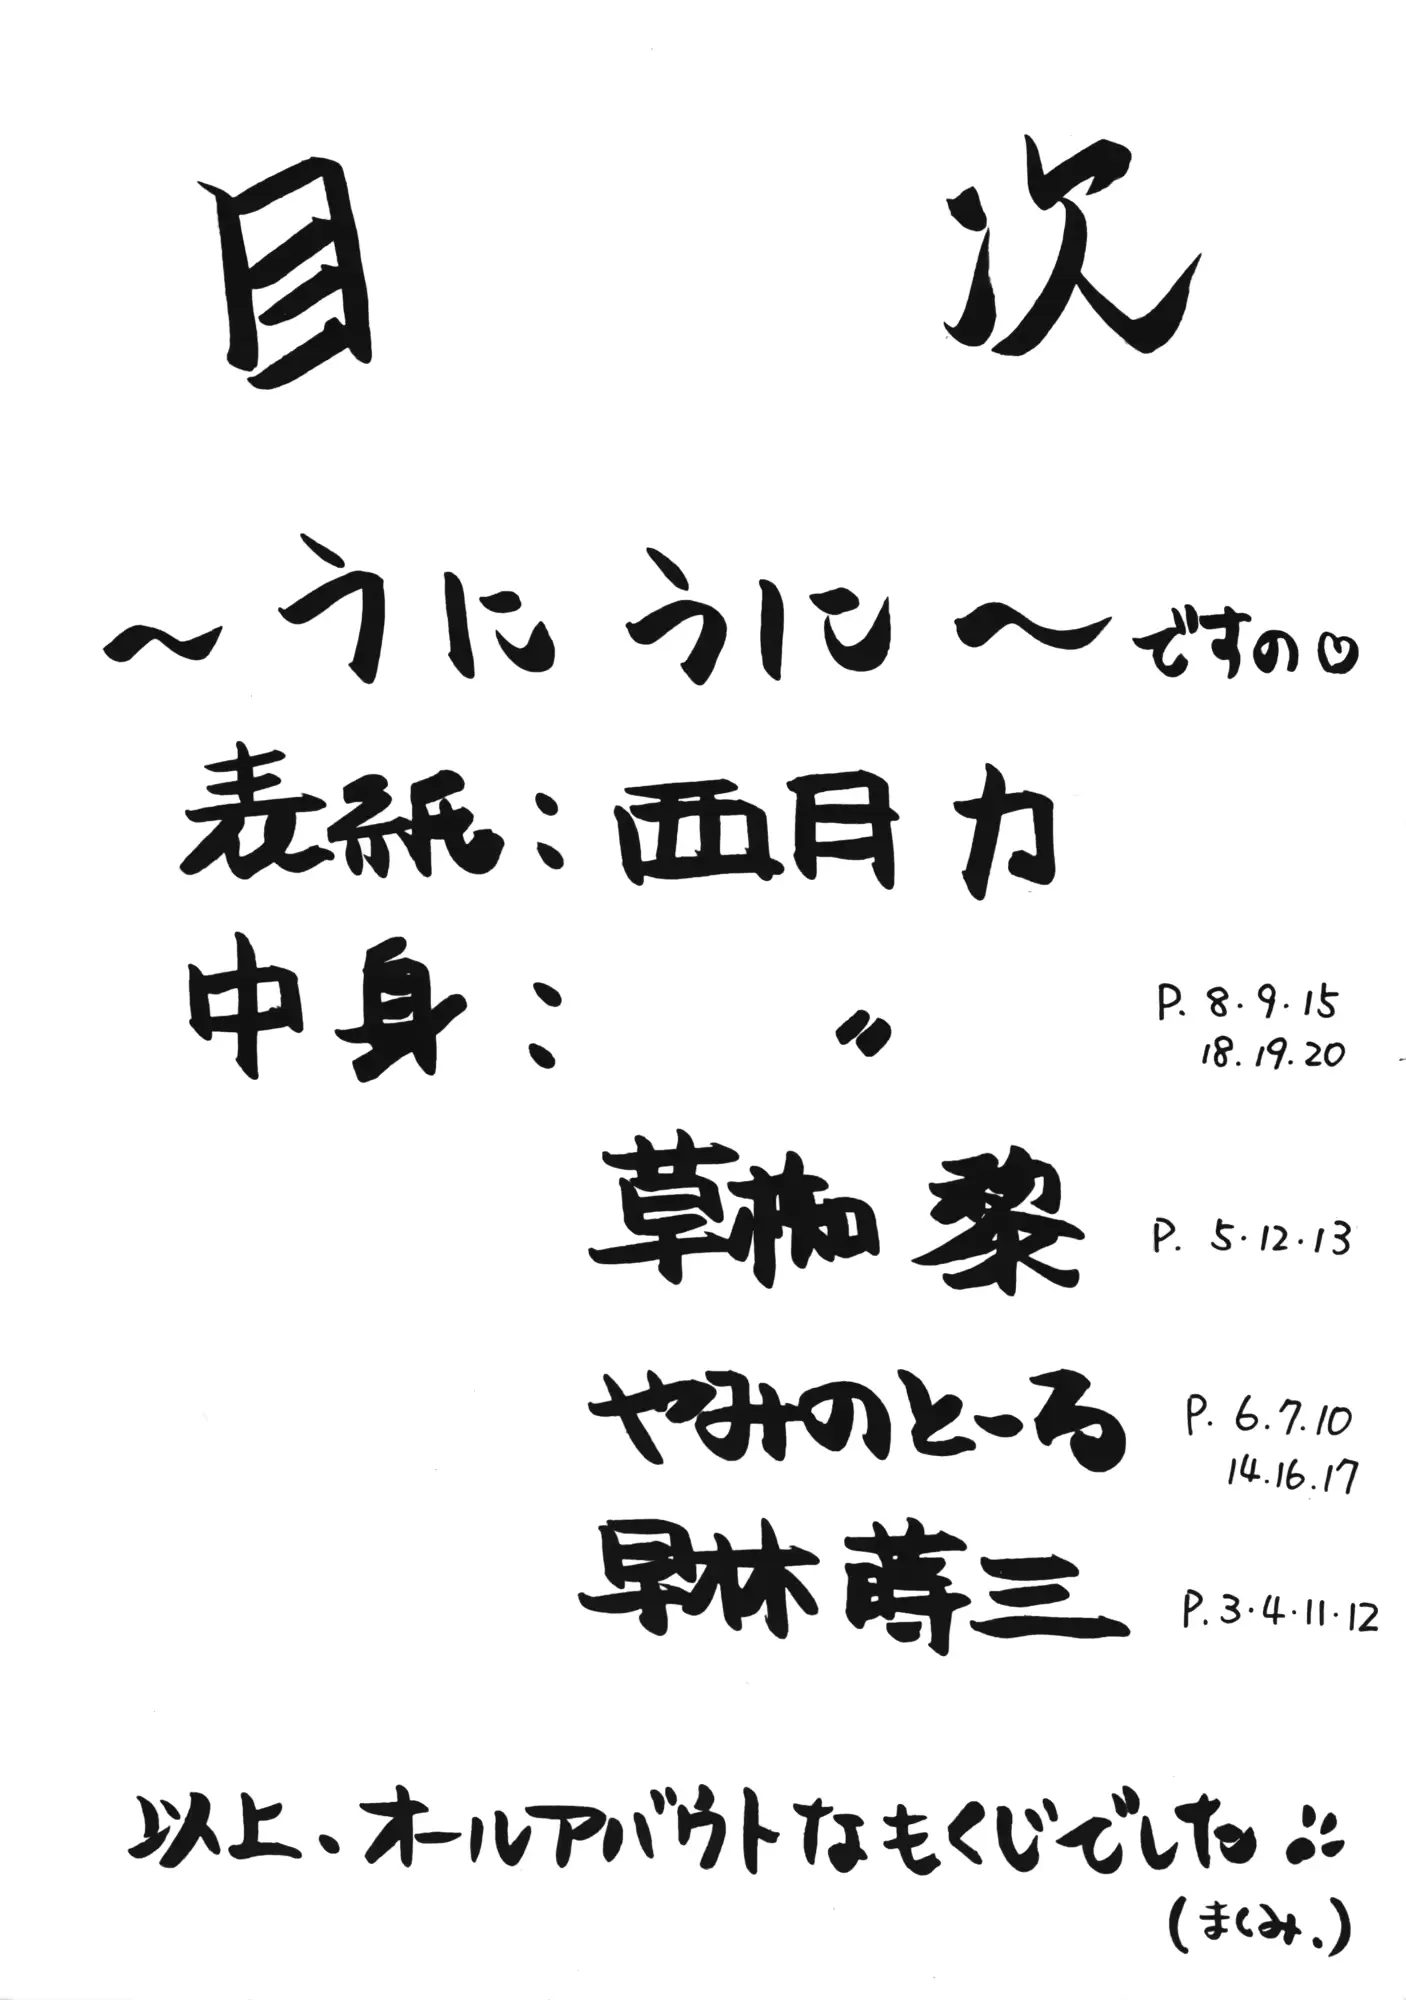 目次
～うにうに～ですの♡
表紙：西月力
中身：〃 P. 8・9・15
18.19.20
草梛 黎 P. 5・12・13
やみのとーる P. 6.7.10
14.16.17
早林蒔三 P.3・4・11・12
以上、オールアバウトなもくじでした
(まくみ.)